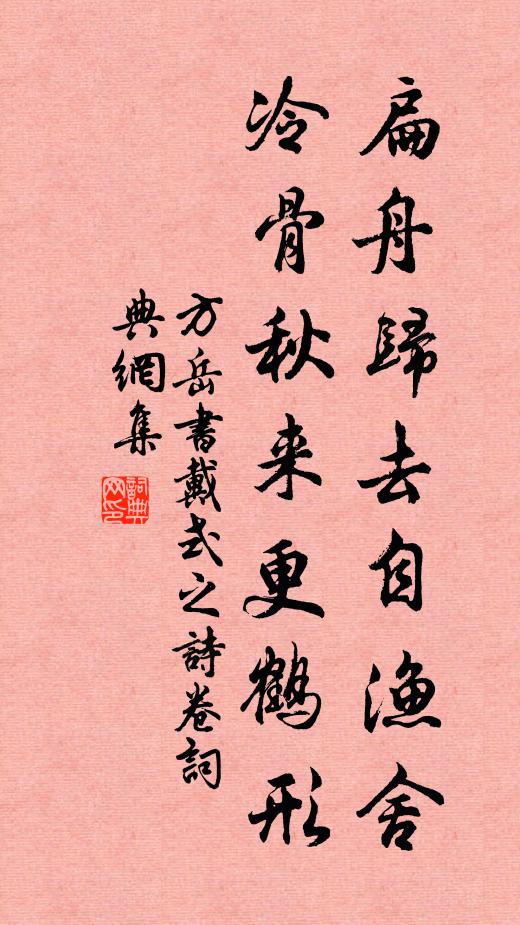 扁舟歸去自漁舍
冷骨秋来更鶴形
方岳書戴式之詩卷詞
典網集
詞典
网印